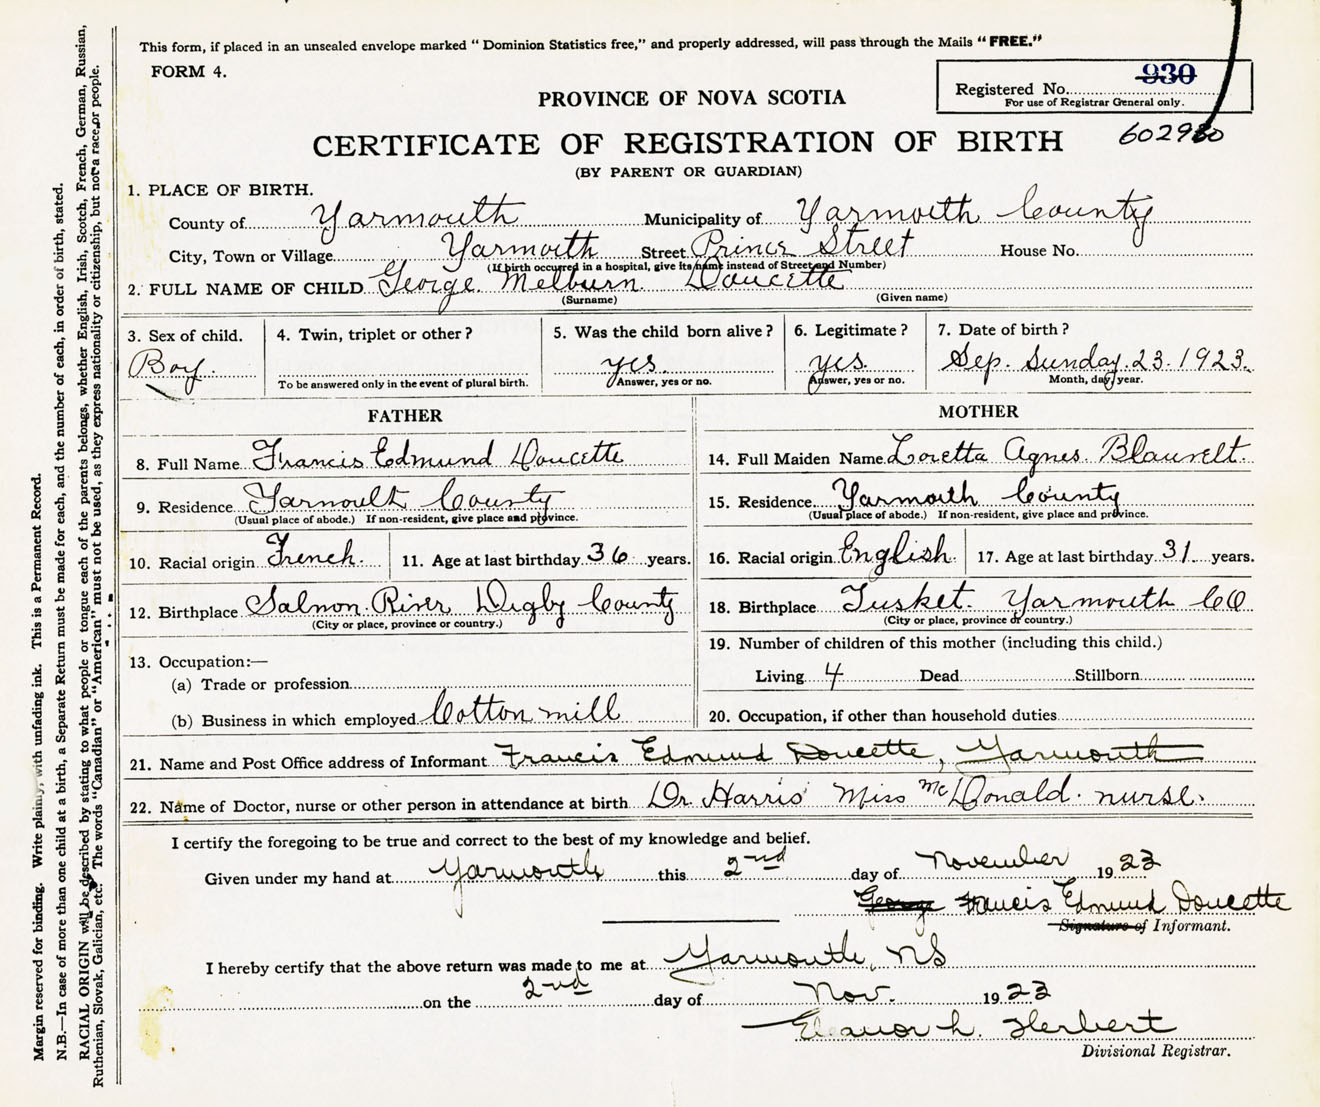 This form, if placed in an unsealed envelope marked "Dominion Statistics free," and properly addressed, will pass through the Mails "FREE."
FORM 4.
Registered No. 930
For use of Registrar General only.
PROVINCE OF NOVA SCOTIA
CERTIFICATE OF REGISTRATION OF BIRTH
602930
(BY PARENT OR GUARDIAN)
1. PLACE OF BIRTH.
County of Yarmouth Municipality of Yarmouth County
City, Town or Village Yarmouth Street Prince Street House No.
(If birth occurred in a hospital, give its name instead of Street and Number)
2. FULL NAME OF CHILD George Melburn Doucette
(Surname) (Given name)
3. Sex of child. 4. Twin, triplet or other? 5. Was the child born alive? 6. Legitimate? 7. Date of birth?
Boy. yes. yes. Sep. Sunday. 23. 1923.
To be answered only in the event of plural birth. Answer, yes or no. Answer, yes or no. Month, day, year.
FATHER
8. Full Name Francis Edmund Doucette
9. Residence Yarmoult County
(Usual place of abode.) If non-resident, give place and province.
10. Racial origin French. 11. Age at last birthday 36 years.
12. Birthplace Salmon River Digby County
(City or place, province or country.)
13. Occupation:—
(a) Trade or profession
(b) Business in which employed Cotton mill
MOTHER
14. Full Maiden Name Loretta Agnes Blauvelt.
15. Residence Yarmouth County
(Usual place of abode.) If non-resident, give place and province.
16. Racial origin English. 17. Age at last birthday 31 years.
18. Birthplace Tusket. Yarmouth CO
(City or place, province or country.)
19. Number of children of this mother (including this child.)
Living 4 Dead Stillborn
20. Occupation, if other than household duties
21. Name and Post Office address of Informant Francis Edmund Doucette, Yarmouth
22. Name of Doctor, nurse or other person in attendance at birth Dr. Harris Miss McDonald. nurse.
I certify the foregoing to be true and correct to the best of my knowledge and belief.
Given under my hand at Yarmouth this 2nd day of November 1923
George Francis Edmund Doucette
Signature of Informant.
I hereby certify that the above return was made to me at Yarmouth, NS
on the 2nd day of Nov. 1923
Eleanor L. Herbert
Divisional Registrar.
Margin reserved for binding. Write plainly, with unfading ink. This is a Permanent Record.
N.B.—In case of more than one child at a birth, a Separate Return must be made for each, and the number of each, in order of birth, stated.
RACIAL ORIGIN will be described by stating to what people or tongue each of the parents belongs, whether English, Irish, Scotch, French, German, Russian,
Ruthenian, Slovak, Galician, etc. The words "Canadian" or "American" must not be used, as they express nationality or citizenship, but not a race or people.